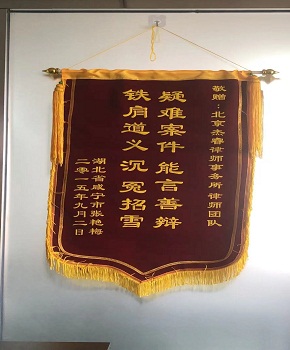 敬赠：北京杰睿律师事务所律师团队
疑难案件能言善辩
铁肩道义沉冤招雪
湖北省咸宁市张艳梅
二零一五年九月二日